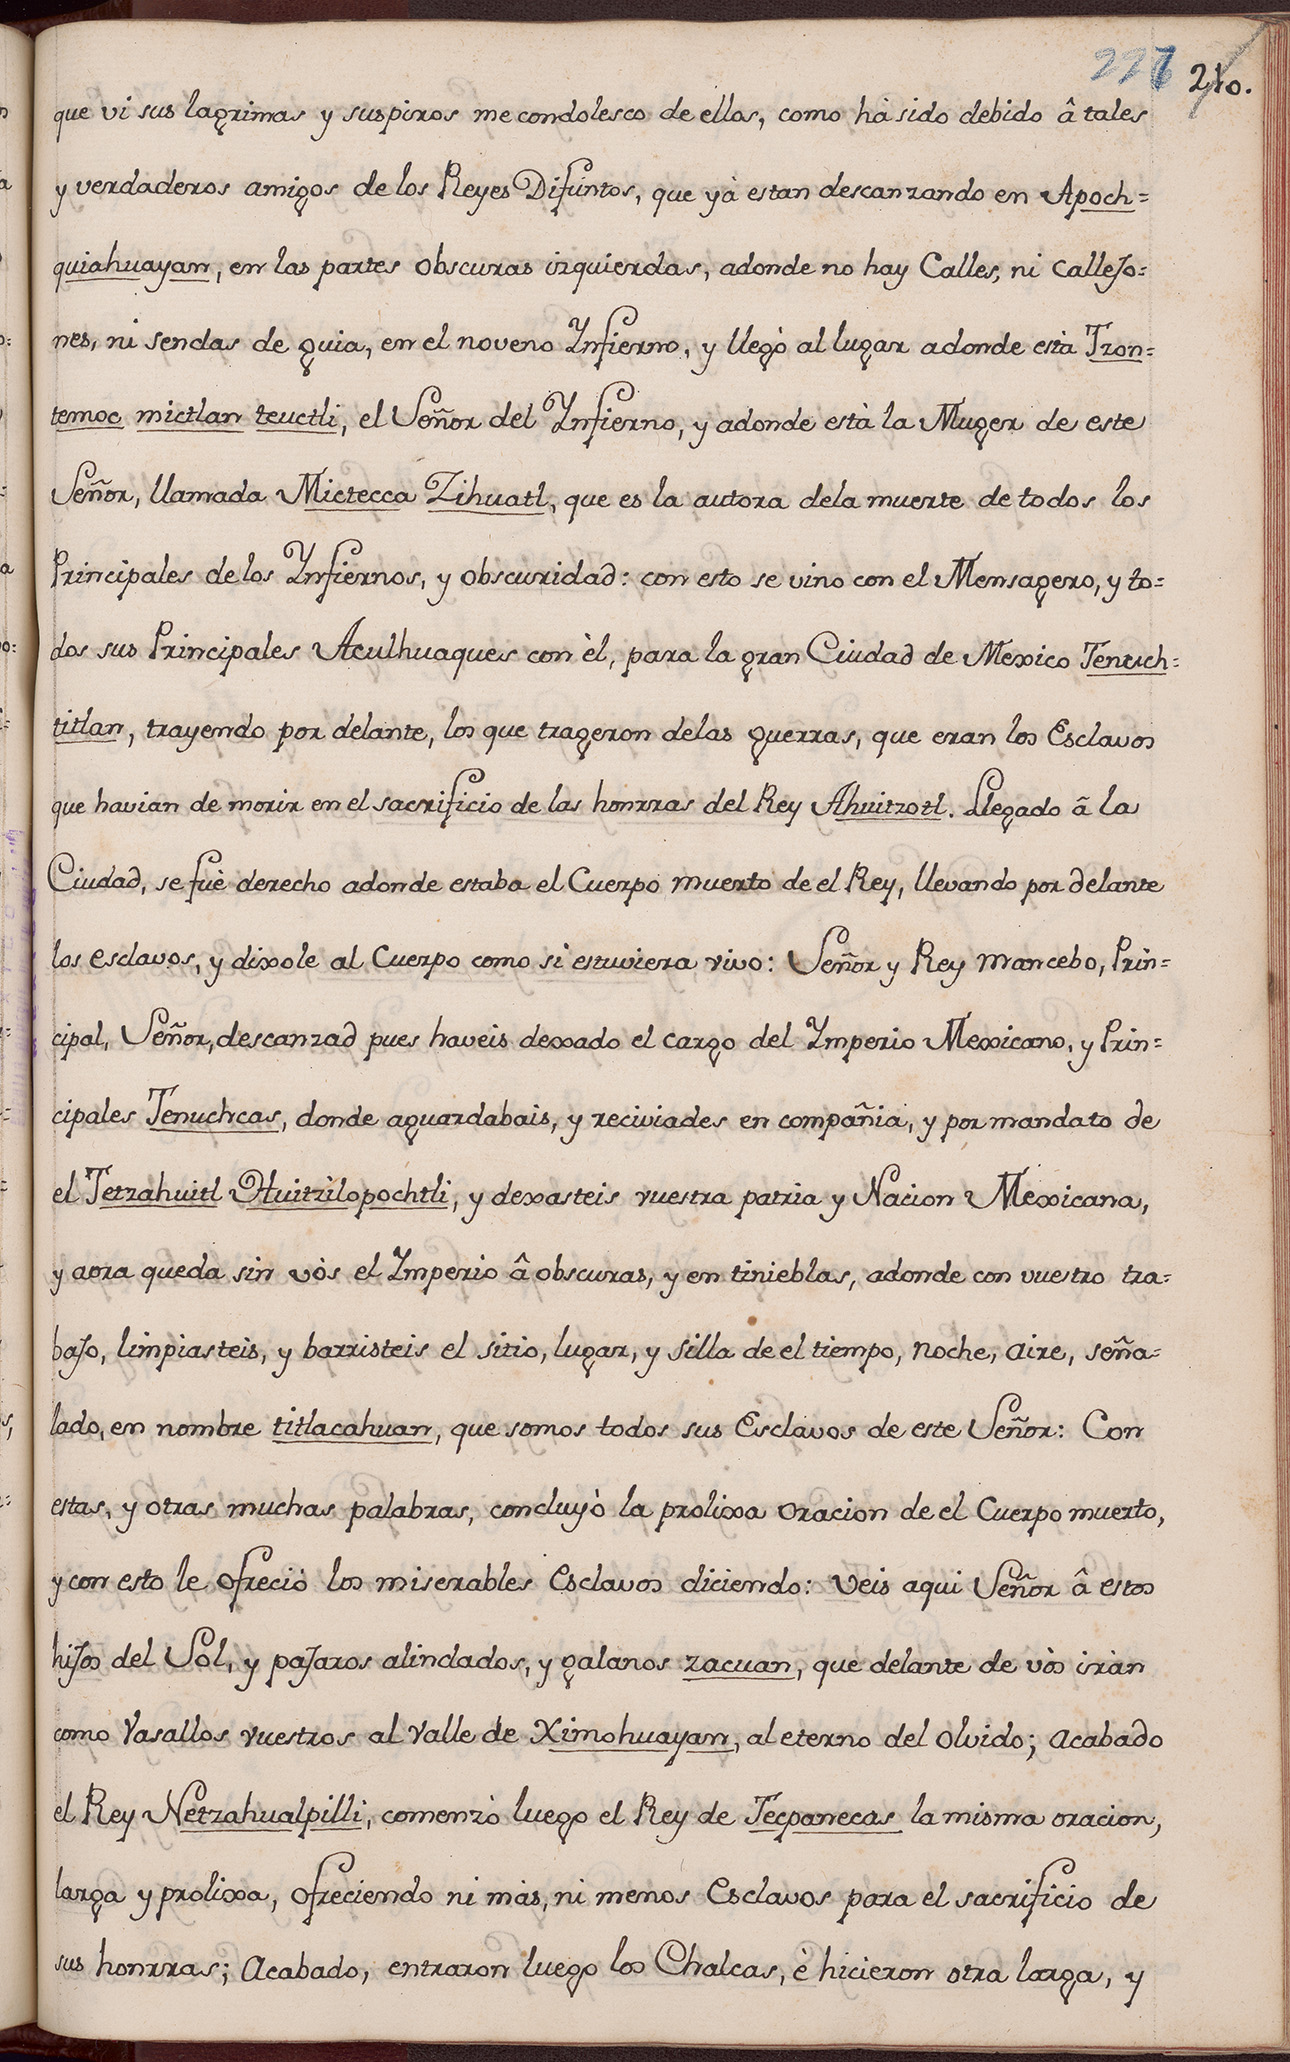 227 210.
que vi sus lagrimas y suspiros me condolesco de ellos, como hà sido debido â tales
y verdaderos amigos de los Reyes Difuntos, que yà estan descanzando en Apoch=
quiahuayan, en las partes obscuras izquierdas, adonde no hay Calles, ni callejo=
nes, ni sendas de guia, en el noveno Ynfierno, y llegò al lugar adonde està Tzon=
temoc mictlan teuctli, el Señor del Ynfierno, y adonde està la Muger de este
Señor, llamada Mictecca Zihuatl, que es la autora dela muerte de todos los
Principales de los Ynfiernos, y obscuridad: con esto se vino con el Mensagero, y to=
dos sus Principales Aculhuaques con èl, para la gran Ciudad de Mexico Tenuch=
titlan, trayendo por delante, los que trageron delas guerras, que eran los Esclavos
que havian de morir en el sacrificio de las honrras del Rey Ahuitzotl. Llegado â la
Ciudad, se fuè derecho adonde estaba el Cuerpo muerto de el Rey, llevando por delante
los esclavos, y dixole al Cuerpo como si estuviera vivo: Señor y Rey mancebo, Prin=
cipal, Señor, descanzad pues haveis dexado el cargo del Ymperio Mexicano, y Prin=
cipales Tenuchcas, donde aguardabais, y reciviades en compañia, y por mandato de
el Tetzahuitl Huitzilopochtli, y dexasteis vuestra patria y Nacion Mexicana,
y aora queda sin vòs el Ymperio â obscuras, y en tinieblas, adonde con vuestro tra=
bajo, limpiasteis, y barristeis el sitio, lugar, y silla de el tiempo, noche, aire, seña=
lado, en nombre titlacahuan, que somos todos sus Esclavos de este Señor: Con
estas, y otras muchas palabras, concluyò la prolixa oracion de el Cuerpo muerto,
y con esto le ofreciò los miserables Esclavos diciendo: veis aqui Señor â estos
hijos del Sol, y pajaros alindados, y galanos zacuan, que delante de vòs iràn
como Vasallos vuestros al Valle de Ximohuayan, al eterno del olvido; acabado
el Rey Netzahualpilli, comenzò luego el Rey de Tecpanecas la misma oracion,
larga y prolixa, ofreciendo ni màs, ni menos Esclavos para el sacrificio de
sus honrras; Acabado, entraron luego los Chalcas, è hicieron otra larga, y